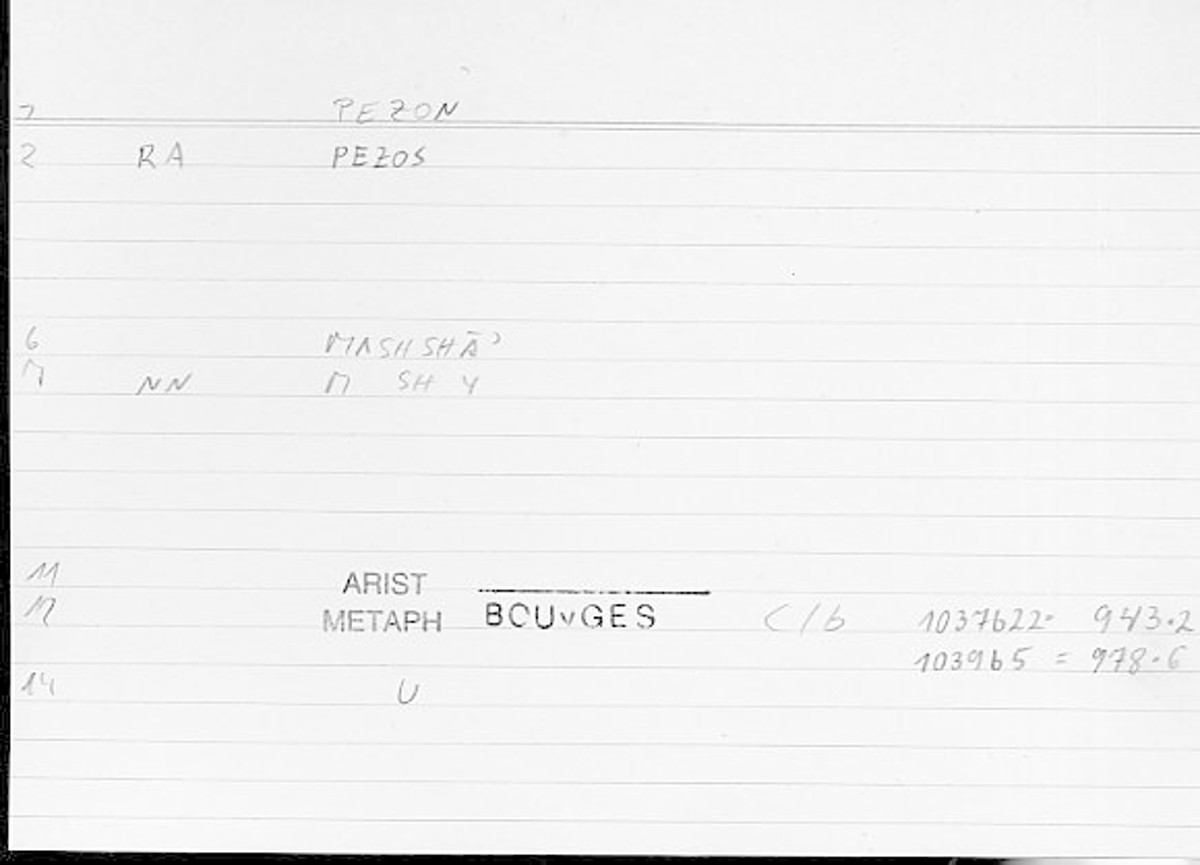 7 PEZON
2 RA PEZOS
6 MASHSHĀʾ
M NN M SH Y
11 ARIST
12 METAPH BOUvGES C/b 1037b22= 943.2
1039b5 = 978.6
14 U